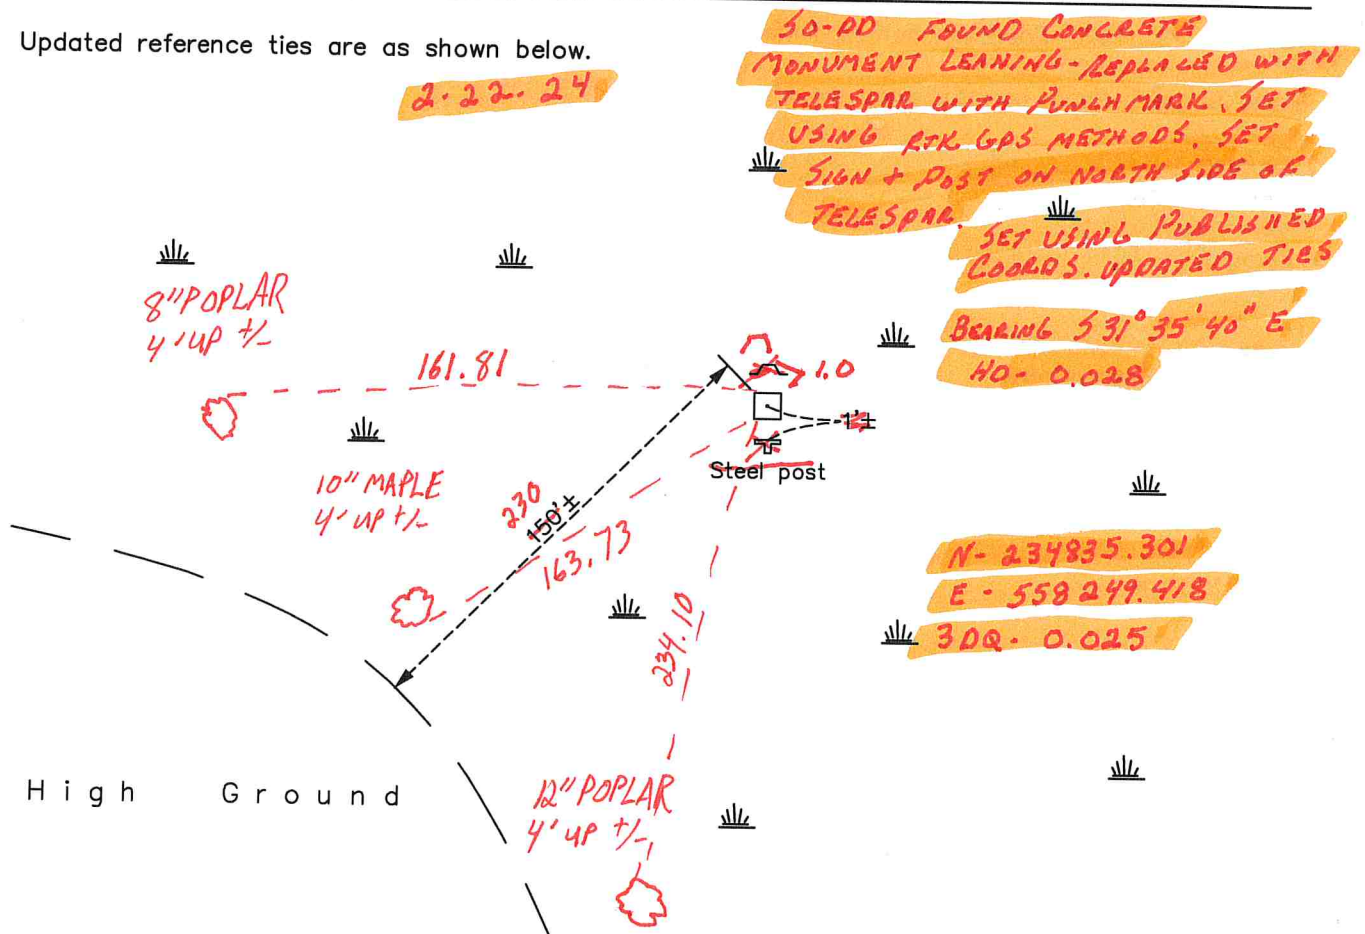 Updated reference ties are as shown below.
2.22.24
SD-DD FOUND CONCRETE
MONUMENT LEANING-REPLACED WITH
TELESPAR WITH PUNCHMARK. SET
USING RTK GPS METHODS. SET
SIGN + POST ON NORTH SIDE OF
TELESPAR.
SET USING PUBLISHED
COORDS. UPDATED TIES
BEARING S 31° 35' 40" E
HD- 0.028
8" POPLAR
4' UP +/-
161.81
1.0
1'±
Steel post
10" MAPLE
4' UP +/-
230
150'±
163.73
234.10
N- 234835.301
E- 558249.418
3DQ- 0.025
High Ground
12" POPLAR
4' UP +/-